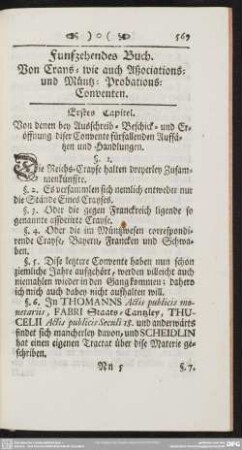 ❧ ) o ( ❧ 569
Funfzehendes Buch.
Von Crays- wie auch Aßociations-
und Müntz- Probations-
Conventen.
Erstes Capitel.
Von denen bey Ausschreib- Beschick- und Er-
öffnung diser Convente fürfallenden Auffsä-
tzen und Handlungen.
§. 1.
Die Reichs-Crayse halten dreyerley Zusam-
menkünffte.
§. 2. Es versammlen sich nemlich entweder nur
die Stände Eines Crayses.
§. 3. Oder die gegen Franckreich ligende so
genannte associirte Crayse.
§. 4. Oder die im Müntzwesen correspondi-
rende Crayse, Bayern, Francken und Schwa-
ben.
§. 5. Dise letztere Convente haben nun schon
ziemliche Jahre aufgehört, werden villeicht auch
niemahlen wieder in den Gang kommen; dahero
ich mich auch dabey nicht aufhalten will.
§. 6. In THOMANNS Actis publicis mo-
netariis, FABRI Staats-Cantzley, THU-
CELII Actis publicis Seculi 18. und anderwärts
findet sich mancherley davon, und SCHEIDLIN
hat einen eigenen Tractat über dise Materie ge-
schriben.
Nn 5 §. 7.